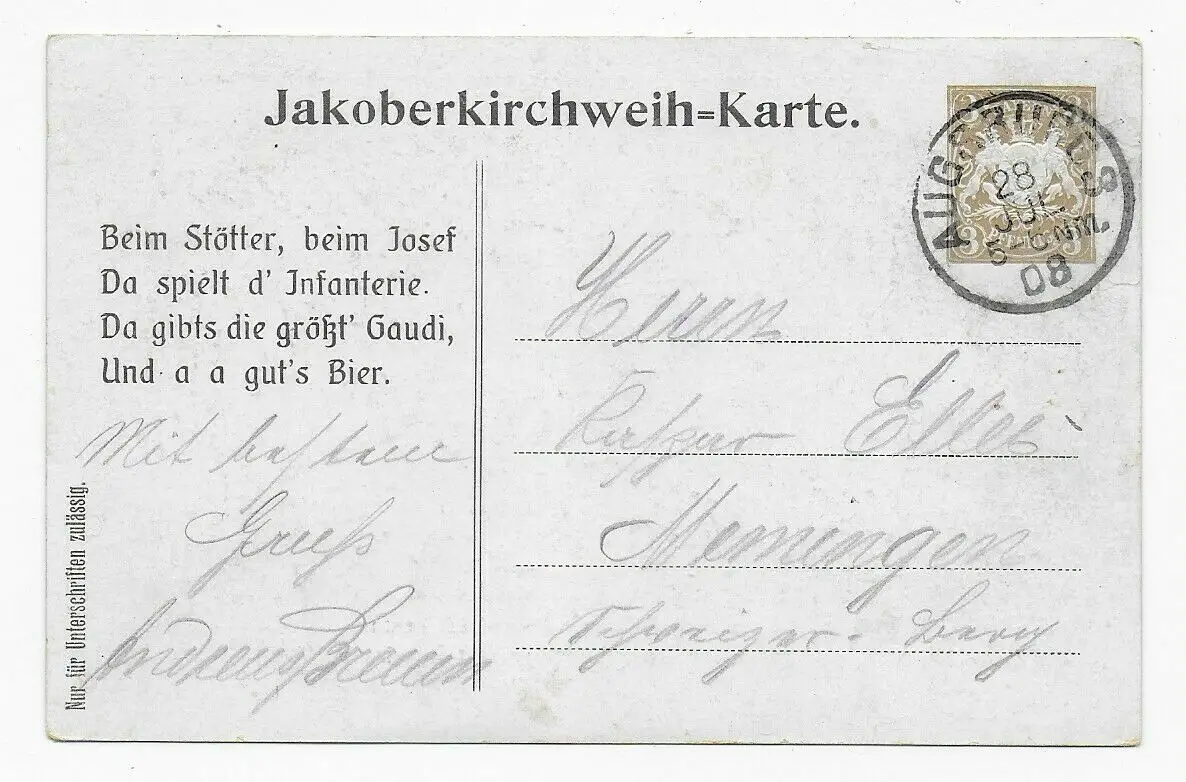 Jakoberkirchweih=Karte.
AUGSBURG 8
28
JUL
5 6 Nm.
08
3 PFENNIG 3
Beim Stötter, beim Josef
Da spielt d' Infanterie.
Da gibts die größt' Gaudi,
Und a a gut's Bier.
Mit bestem
Gruß
Andreas
Nur für Unterschriften zulässig.
Herrn
Kaspar